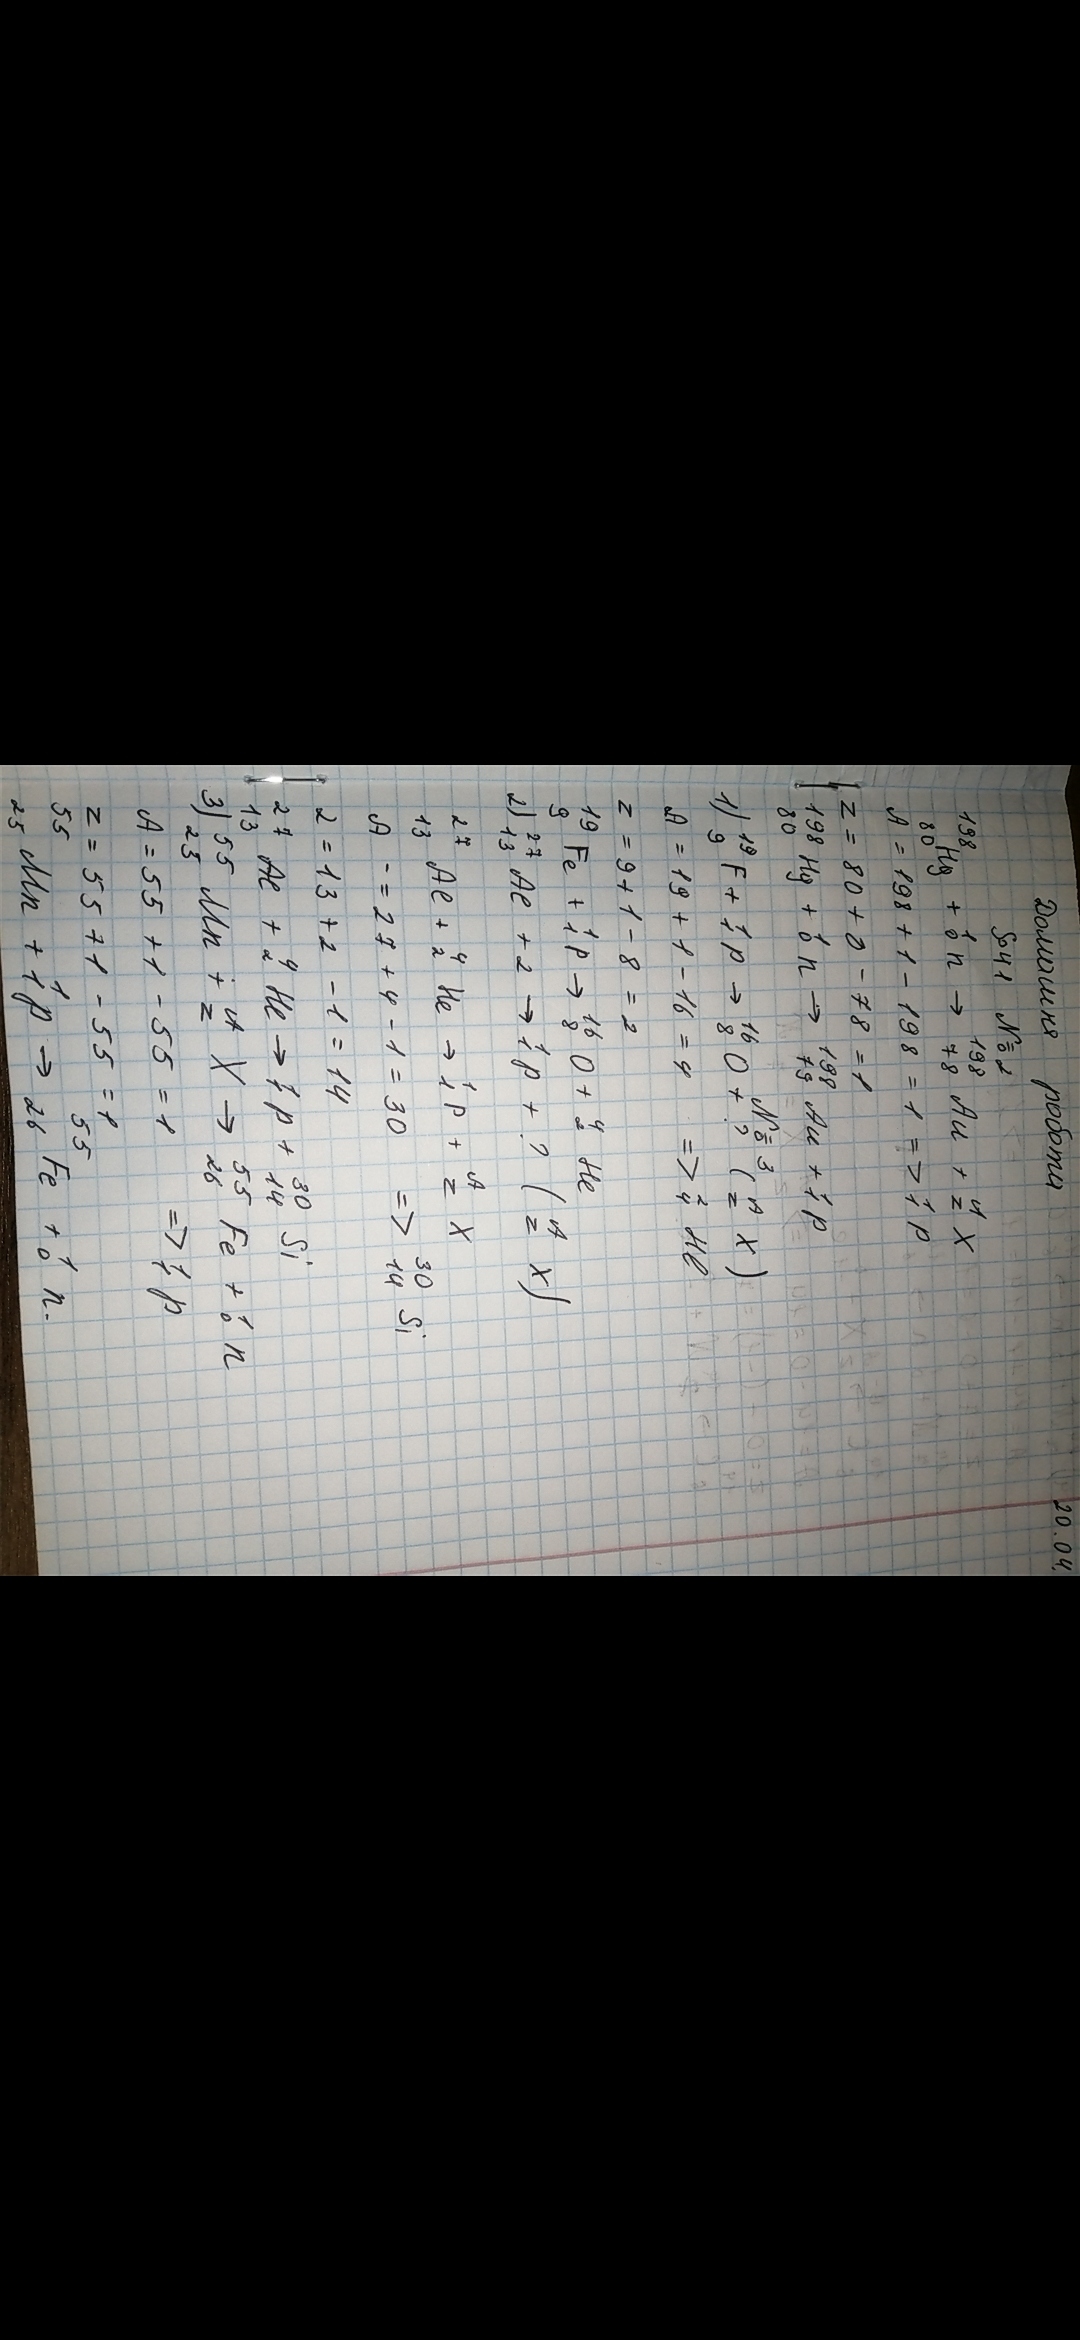 20.04.
Домашня робота
§41 №2
¹⁹⁸₈₀Hg + ¹₀n → ¹⁹⁸₇₈Au + ᴬ_ZX
A = 198 + 1 - 198 = 1 => ¹₁p
Z = 80 + 0 - 78 = 1
¹⁹⁸₈₀Hg + ¹₀n → ¹⁹⁸₇₉Au + ¹₁p
№3
1) ¹⁹₉F + ¹₁p → ¹⁶₈O + ? (ᴬ_ZX)
A = 19 + 1 - 16 = 4 => ²₄He
Z = 9 + 1 - 8 = 2
¹⁹₉Fe + ¹₁p → ¹⁶₈O + ⁴₂He
2) ²⁷₁₃Al + 2 → ¹₁p + ? (ᴬ_ZX)
²⁷₁₃Al + ⁴₂He → ¹₁p + ᴬ_ZX
A = 27 + 4 - 1 = 30 => ³⁰₁₄Si
2 = 13 + 2 - 1 = 14
²⁷₁₃Al + ⁴₂He → ¹₁p + ³⁰₁₄Si
3) ⁵⁵₂₅Mn + ᴬ_ZX → ⁵⁵₂₆Fe + ¹₀n
A = 55 + 1 - 55 = 1 => ¹₁p
Z = 55 + 1 - 55 = 1
⁵⁵₂₅Mn + ¹₁p → ⁵⁵₂₆Fe + ¹₀n.